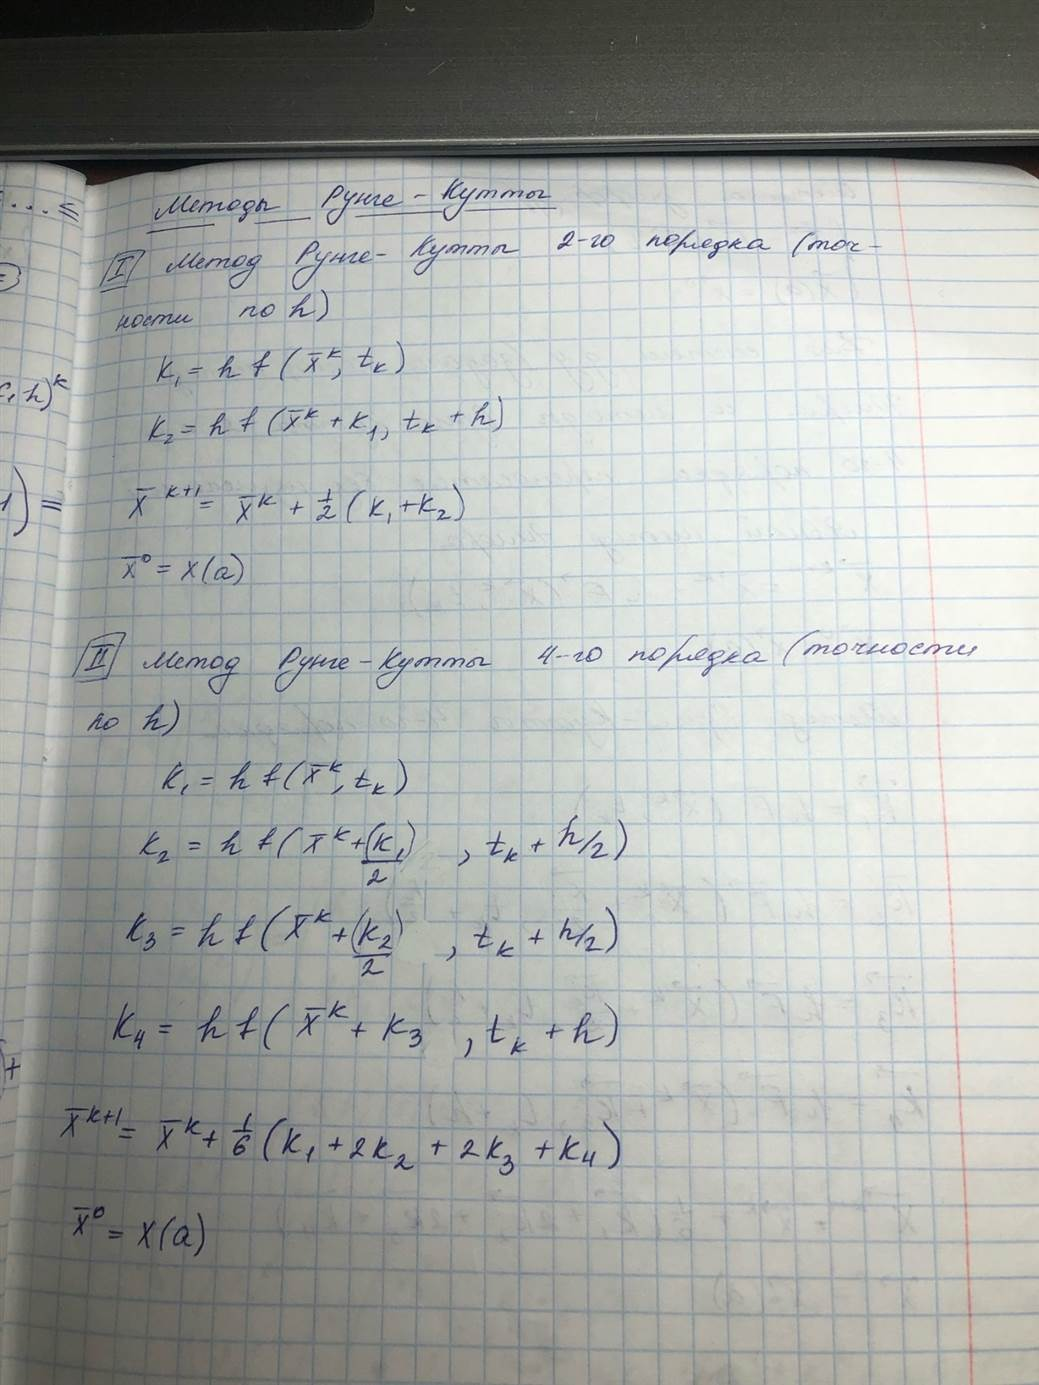 Методы Рунге-Кутты
I Метод Рунге-Кутты 2-го порядка (точ-
ности по h)
K₁ = h f (x̄ᵏ, tₖ)
K₂ = h f (x̄ᵏ + K₁, tₖ + h)
x̄ᵏ⁺¹ = x̄ᵏ + 1/2 (K₁ + K₂)
x̄⁰ = x(a)
II Метод Рунге-Кутты 4-го порядка (точности
по h)
K₁ = h f (x̄ᵏ, tₖ)
K₂ = h f (x̄ᵏ + (K₁)/2 , tₖ + h/2)
K₃ = h f (x̄ᵏ + (K₂)/2 , tₖ + h/2)
K₄ = h f (x̄ᵏ + K₃ , tₖ + h)
x̄ᵏ⁺¹ = x̄ᵏ + 1/6 (K₁ + 2K₂ + 2K₃ + K₄)
x̄⁰ = x(a)